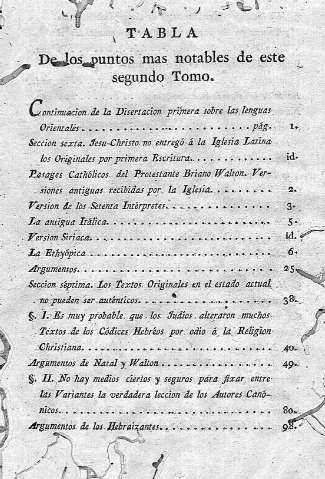 TABLA
De los puntos mas notables de este
segundo Tomo.
Continuacion de la Disertacion primera sobre las lenguas
Orientales . . . . . . . . . . . . . . . . . . . . pág. 1.
Seccion sexta. Jesu-Christo no entregó á la Iglesia Latina
los Originales por primera Escritura. . . . . . . . . . id.
Pasages Cathólicos del Protestante Briano Walton. Ver-
siones antiguas recibidas por la Iglesia. . . . . . . . . 2.
Version de los Setenta Intérpretes. . . . . . . . . . . . 3.
La antigua Itálica. . . . . . . . . . . . . . . . . . . 5.
Version Siriaca. . . . . . . . . . . . . . . . . . . . Id.
La Ethyópica . . . . . . . . . . . . . . . . . . . . 6.
Argumentos. . . . . . . . . . . . . . . . . . . . . 25.
Seccion séptima. Los Textos Originales en el estado actual
no pueden ser auténticos. . . . . . . . . . . . . . . 38.
§. I. Es muy probable que los Judios alteraron muchos
Textos de los Códices Hebréos por odio á la Religion
Christiana. . . . . . . . . . . . . . . . . . . . . 40.
Argumentos de Natal y Walton . . . . . . . . . . . . . 49.
§. II. No hay medios ciertos y seguros para fixar entre
las Variantes la verdadera leccion de los Autores Canó-
nicos. . . . . . . . . . . . . . . . . . . . . . . 80.
Argumentos de los Hebraizantes. . . . . . . . . . . . . 98.